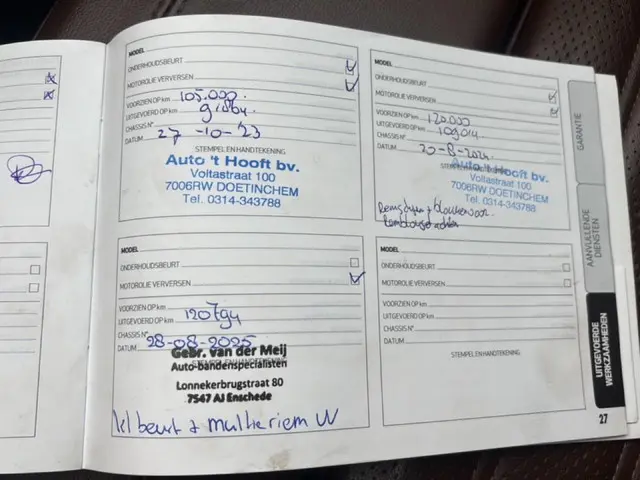 MODEL
ONDERHOUDSBEURT
MOTOROLIE VERVERSEN
VOORZIEN OP km 105.000
UITGEVOERD OP km
CHASSIS N°
DATUM 27-10-'23
STEMPEL EN HANDTEKENING
Auto 't Hooft bv.
Voltastraat 100
7006RW DOETINCHEM
Tel. 0314-343788
MODEL
ONDERHOUDSBEURT
MOTOROLIE VERVERSEN
VOORZIEN OP km 120.000
UITGEVOERD OP km 109014
CHASSIS N°
DATUM 20-8-2024
STEMPEL EN HANDTEKENING
Auto 't Hooft bv.
Voltastraat 100
7006RW DOETINCHEM
Tel. 0314-343788
MODEL
ONDERHOUDSBEURT
MOTOROLIE VERVERSEN
VOORZIEN OP km
UITGEVOERD OP km 120794
CHASSIS N°
DATUM 28-08-2025
STEMPEL EN HANDTEKENING
Gebr. van der Meij
Auto-bandenspecialisten
Lonnekerbrugstraat 80
7547 AJ Enschede
kl beurt + multieriem VV
MODEL
ONDERHOUDSBEURT
MOTOROLIE VERVERSEN
VOORZIEN OP km
UITGEVOERD OP km
CHASSIS N°
DATUM
STEMPEL EN HANDTEKENING
GARANTIE
AANVULLENDE
DIENSTEN
UITGEVOERDE
WERKZAAMHEDEN
27